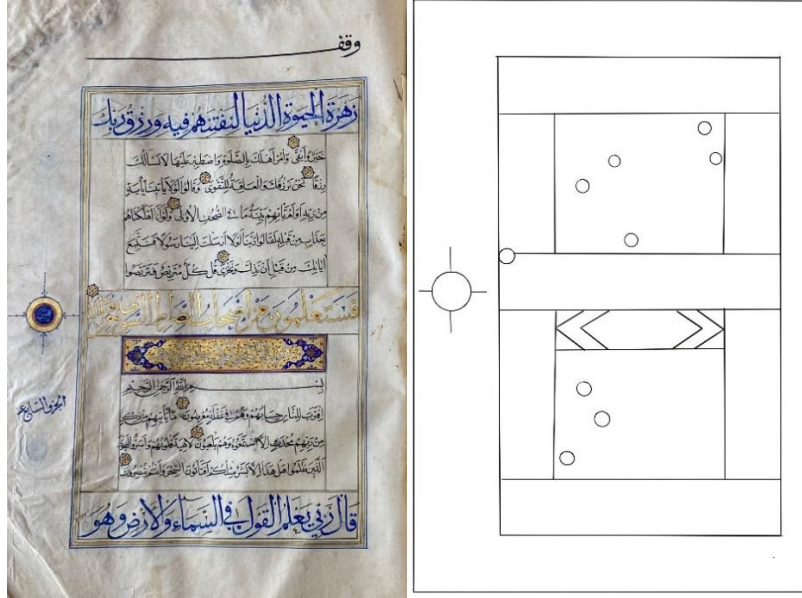 وقف
زهرة الحيوة الدنيا لنفتنهم فيه ورزق ربك
خير وأبقى وأمر أهلك بالصلوة واصطبر عليها لا نسألك
رزقا نحن نرزقك والعاقبة للتقوى وقالوا لولا يأتينا بآية
من ربه أولم تأتهم بينة ما في الصحف الأولى ولو أنا أهلكناهم
بعذاب من قبله لقالوا ربنا لولا أرسلت إلينا رسولا فنتبع
آياتك من قبل أن نذل ونخزى قل كل متربص فتربصوا
فستعلمون من أصحاب الصراط السوي
بسم الله الرحمن الرحيم
اقترب للناس حسابهم وهم في غفلة معرضون ما يأتيهم من ذكر
من ربهم محدث إلا استمعوه وهم يلعبون لاهية قلوبهم وأسروا النجوى
الذين ظلموا هل هذا إلا بشر مثلكم أفتأتون السحر وأنتم تبصرون
قال ربي يعلم القول في السماء والأرض وهو
الجزو السابع